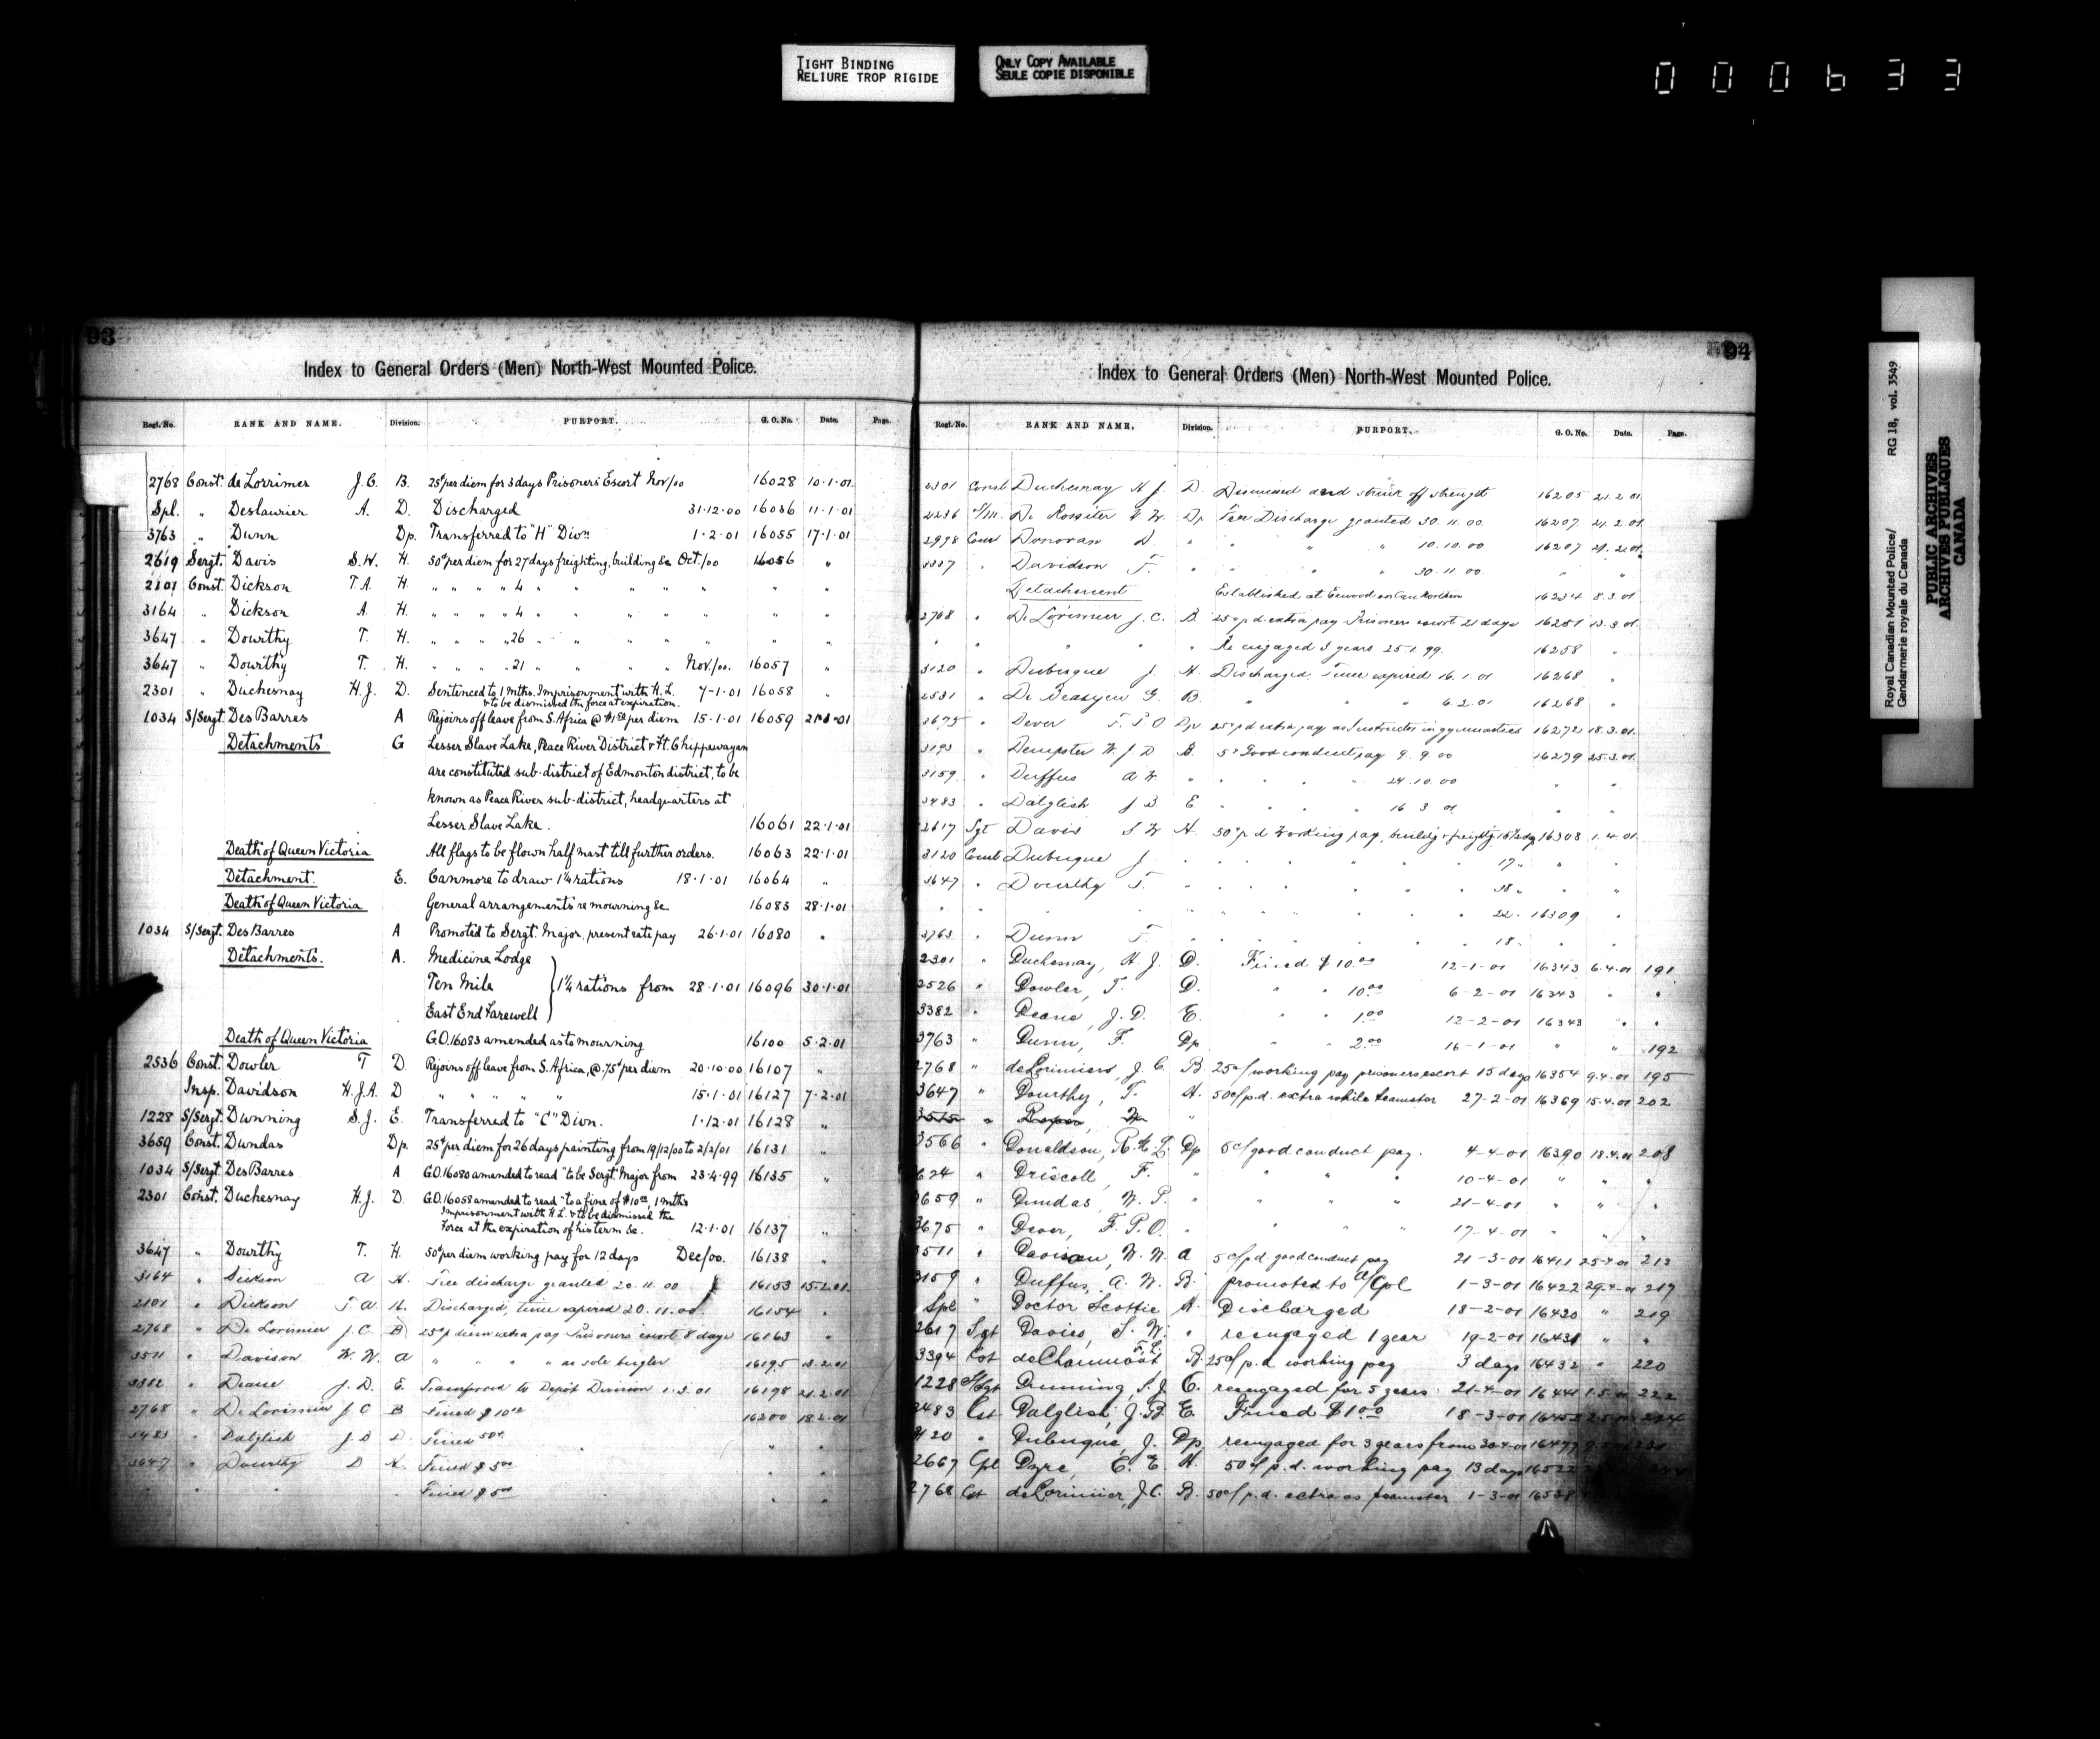 TIGHT BINDING
RELIURE TROP RIGIDE
ONLY COPY AVAILABLE
SEULE COPIE DISPONIBLE
000633
93
Index to General Orders (Men) North-West Mounted Police.
Regt. No. RANK AND NAME. Division. PURPORT. G. O. No. Date. Page.
2768 Const. de Lorrimer J.C. B. 25¢ per diem for 3 days Prisoners Escort Nov/00 16028 10.1.01
Spl. " Deslaurier A. D. Discharged 31.12.00 16036 11.1.01
3763 " Dunn Dp. Transferred to "H" Divn 1.2.01 16055 17.1.01
2619 Sergt. Davis S.W. H. 50¢ per diem for 27 days freighting, building &c Oct./00 16056 "
2101 Const. Dickson T.A. H. " " " " 4 " " " " " "
3164 " Dickson A. H. " " " " 4 " " " " " "
3647 " Dowrthy T. H. " " " " 26 " " " " " "
3647 " Dowrthy T. H. " " " " 21 " " " Nov./00. 16057 "
2301 " Duchesnay H.J. D. Sentenced to 1 mths. Imprisonment with H.L. 7-1-01 16058 "
& to be dismissed the force at expiration.
1034 S/Sergt. Des Barres A Rejoins off leave from S. Africa @ $1.50 per diem 15.1.01 16059 21.1.01
Detachments G Lesser Slave Lake, Peace River District & Ft. Chippewayan
are constituted sub-district of Edmonton district, to be
known as Peace River sub-district, headquarters at
Lesser Slave Lake. 16061 22.1.01
Death of Queen Victoria All flags to be flown half mast till further orders. 16063 22.1.01
Detachment. E. Canmore to draw 1¼ rations 18.1.01 16064 "
Death of Queen Victoria General arrangements re mourning &c 16083 28.1.01
1034 S/Sergt. Des Barres A Promoted to Sergt. Major, present rate pay 26.1.01 16080 "
Detachments. A. Medicine Lodge
Ten Mile } 1¼ rations from 28.1.01 16096 30.1.01
East End Farewell
Death of Queen Victoria G.O. 16083 amended as to mourning 16100 5.2.01
2536 Const. Dowler T D. Rejoins off leave from S. Africa, @ .75¢ per diem 20.10.00 16107 "
Insp. Davidson H.J.A. D " " " " " 15.1.01 16127 7.2.01
1228 S/Sergt. Dunning S.J. E. Transferred to "C" Divn. 1.12.01 16128 "
3659 Const. Dundas Dp. 25¢ per diem for 26 days painting from 19/12/00 to 2/2/01 16131 "
1034 S/Sergt. Des Barres A G.O. 16080 amended to read "to be Sergt. Major from 23.4.99 16135 "
2301 Const. Duchesnay H.J. D. G.O. 16058 amended to read "to a fine of $10.00, 1 mths
Imprisonment with H.L. & to be dismissed the
Force at the expiration of his term &c. 12.1.01 16137 "
3647 " Dowrthy T. H. 50¢ per diem working pay for 12 days Dec/00. 16138 "
3164 " Dickson A H. Free discharge granted 20.11.00 16153 15.2.01
2101 " Dickson T.A. H. Discharged, time expired 20.11.00 16154 "
2768 " De Lorimier J.C. B 25¢ p diem extra pay Prisoners escort 8 days 16163 "
3511 " Davison W.W. A " " " " as sole bugler 16195 18.2.01
3382 " Deane J.D. E. Transferred to Depôt Division 1.3.01 16198 21.2.01
2768 " De Lorimier J.C B Fined $10.00 16200 18.2.01
3483 " Dalglish J.B D. Fined 50¢ " "
3647 " Dowrthy D H. Fined $5.00 " "
" " " " Fined $5.00 " "
94
Index to General Orders (Men) North-West Mounted Police.
Regt. No. RANK AND NAME. Division. PURPORT. G. O. No. Date. Page.
2301 Const Duchesnay H J. D. Dismissed and struck off strength 16205 21.2.01
2236 De Rossiter W. Dp Free Discharge granted 30.11.00 16207 21.2.01
2998 Const Donovan D. " " " " 10.10.00 16207 21.2.01
3337 " Davidson T. " " " " 30.11.00 " "
Detachment Established at 16234 8.3.01
2768 " De Lorimier J.C. B 25¢ p d extra pay Prisoners escort 21 days 16251 13.3.01
" " " " Re engaged 3 years 25.1.99 16258 "
3120 " Dubuque J. H. Discharged. Time expired 16.1.01 16268 "
2531 " G. B. " " 6.2.01 16268 "
3675 " Dever F.P.O Dp. 25¢ p d extra pay as Instructor in gymnastics 16272 18.3.01
3193 " Dempster W.J.D B. 5¢ Good conduct pay 9.9.00 16279 25.3.01
3159 " Duffus A W " " " 24.10.00 " "
3483 " Dalglish J.B E " " " 16.3.01 " "
2617 Sgt Davis S W H. 50¢ p d Working pay, buildg & freightg 16½ days 16308 1.4.01
3120 Const Dubuque J. " " " " 17 " " "
3647 " Dourthy T. " " " " 38 " " "
" " " " " " " 22 " 16309 "
3763 " Dunn F. " " " " 18 " " "
2301 " Duchesnay, H.J. D. Fined $10.00 12-1-01 16343 6.4.01 191
2526 " Dowler, T. D. " " 10.00 6-2-01 16343 " "
3382 " Deane, J.D. E. " " 1.00 12-2-01 16343 " "
3763 " Dunn, F. Dp " " 2.00 16-1-01 " " 192
2768 " deLorimiers, J.C. B. 25c/ working pay prisoners escort 15 days 16354 9.4.01 195
3647 " Dourthy, T. H. 50c/ p.d. extra while teamster 27-2-01 16369 15.4.01 202
3515 " Roper, W "
3566 " Donaldson, R.H.L. Dp 5c/ good conduct pay. 4-4-01 16390 18.4.01 208
624 " Driscoll, F. " " " " 10-4-01 " " "
3659 " Dundas, W.P. " " " " 21-4-01 " " "
3675 " Dever, F.P.O. " " " " 17-4-01 " " "
3511 " Davison, W.W. A 5c/ p.d. good conduct pay 21-3-01 16411 25-4-01 213
3159 " Duffus, A.W. B. promoted to A/Cpl 1-3-01 16422 29.4.01 217
Spl " Doctor Scottie H. Discharged 18-2-01 16430 " 219
2617 Sgt Davies, S.W. " reengaged 1 year 19-2-01 16431 " "
3394 Cst de Chaumont F.L. B. 25c/ p.d. working pay 3 days 16432 " 220
1228 S/Sgt Dunning, S.J. C. reengaged for 5 years 21-4-01 16441 1.5.01 222
3483 Cst Dalglish, J.B. E. Fined $1.00 18-3-01
3120 " Dubuque, J. Dp. reengaged for 3 years from 30.4.01
2667 Cpl Dyre, E.E. H. 50c/ p.d. working pay 13 days
2768 Cst deLorimier, J.C. B. 50c/ p.d. extra as teamster 1-3-01
Royal Canadian Mounted Police/ RG 18, vol. 3549
Gendarmerie royale du Canada
PUBLIC ARCHIVES
ARCHIVES PUBLIQUES
CANADA